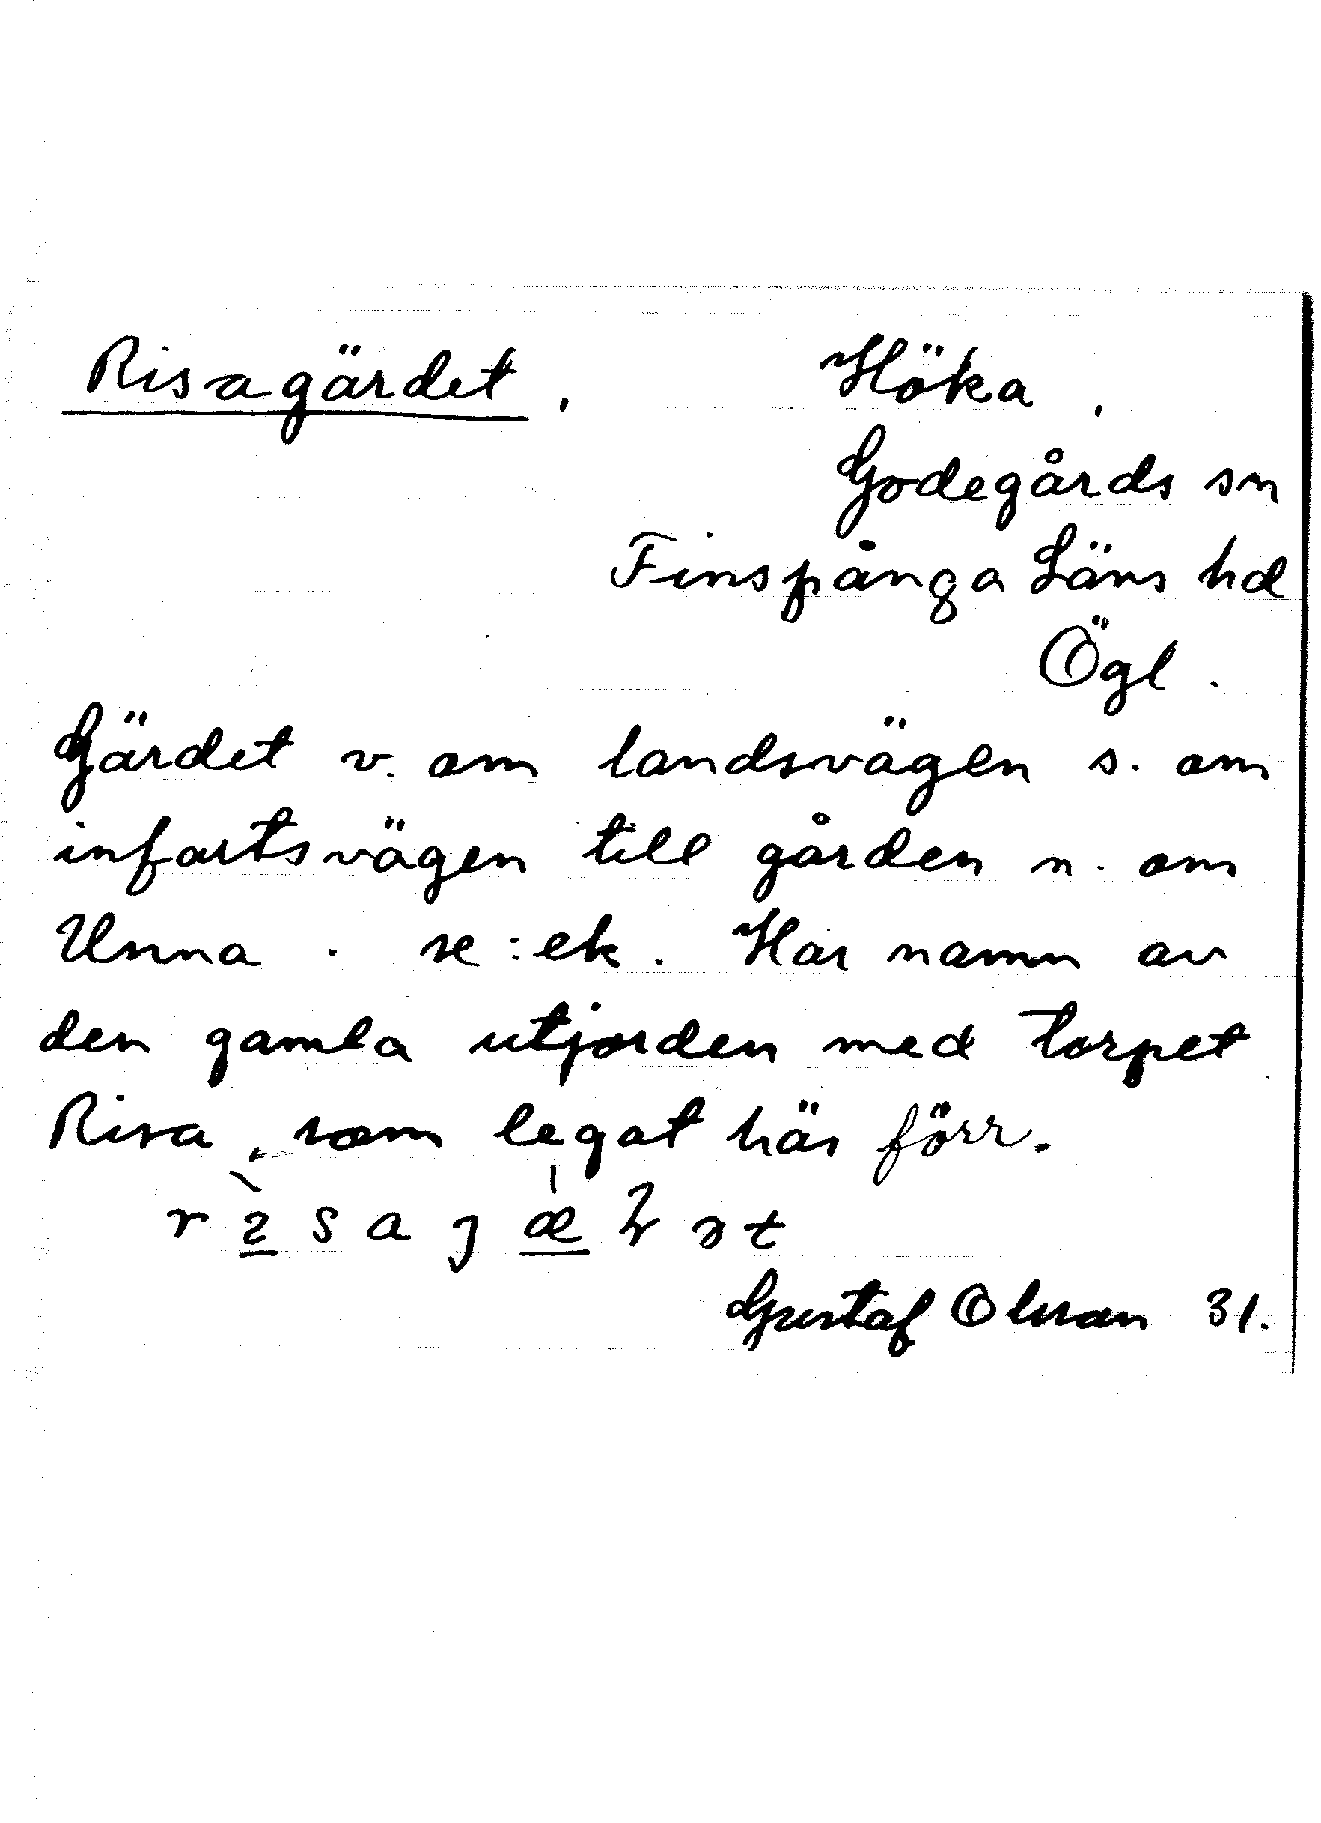 Risagärdet. Höka.
Godegårds sn
Finspånga Läns hd
Ögl.
Gärdet v. om landsvägen s. om
infartsvägen till gården n. om
Unna. se: ek. Har namn av
den gamla utjorden med torpet
Risa, som legat här förr.
Gustaf Olsson 31.